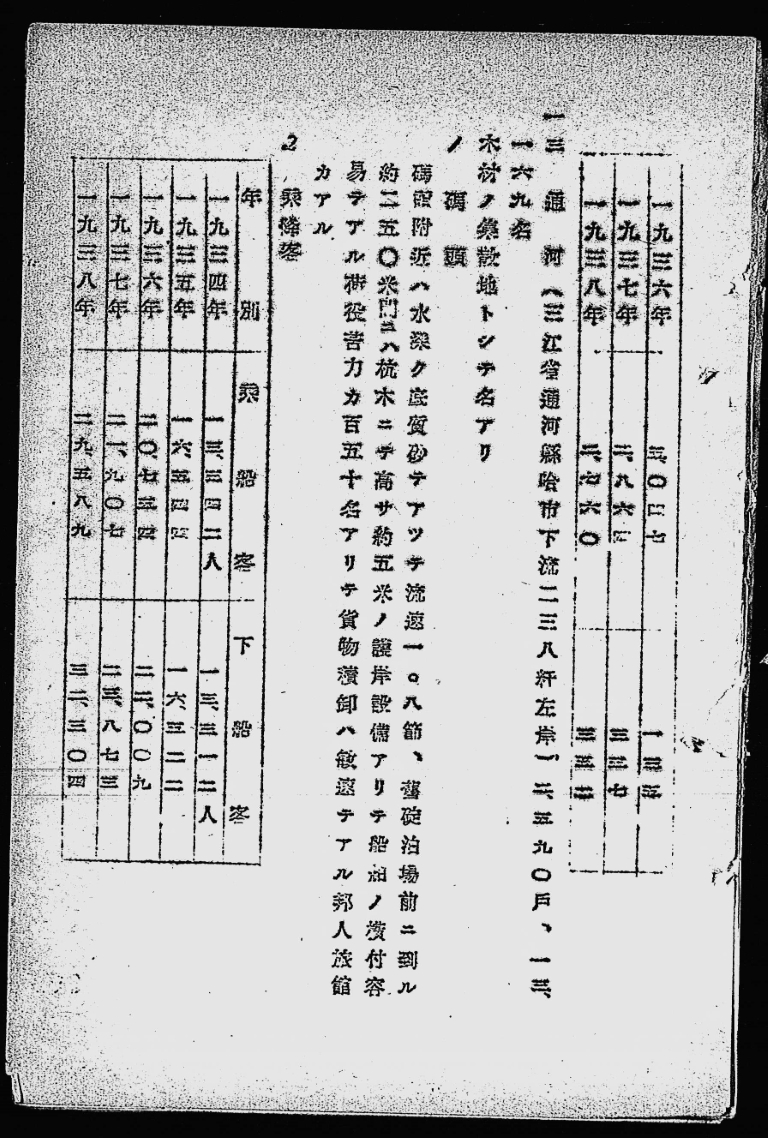 一九三六年 三、〇四七 一三三
一九三七年 二、八六 三三七
一九三八年 二、七六〇
一三 通河（三江省通河縣哈市下流二三八粁左岸、二、五九〇戸、一三、
一六九名
木材ノ集散地トシテ名アリ
ノ 碼頭
碼頭附近ハ水深ク底質砂テアツテ流速一。八節、龍碇泊場前ニ到ル
約二五〇米門ニハ杭木ニテ高サ約五米ノ護岸設備アリテ船舶ノ横付容
易テアル荷役苦力カ百五十名アリテ貨物積卸ハ敏速テアル邦人旅館
カアル
2 乘降客
年別 乘船客 下船客
一九三四年 一三、三四二人 一三、三一二人
一九三五年 一六、五四四 一六、三二二
一九三六年 二〇、七三四 二二、〇〇九
一九三七年 二一、九〇七 二三、八七三
一九三八年 二九、五八九 三二、三〇四